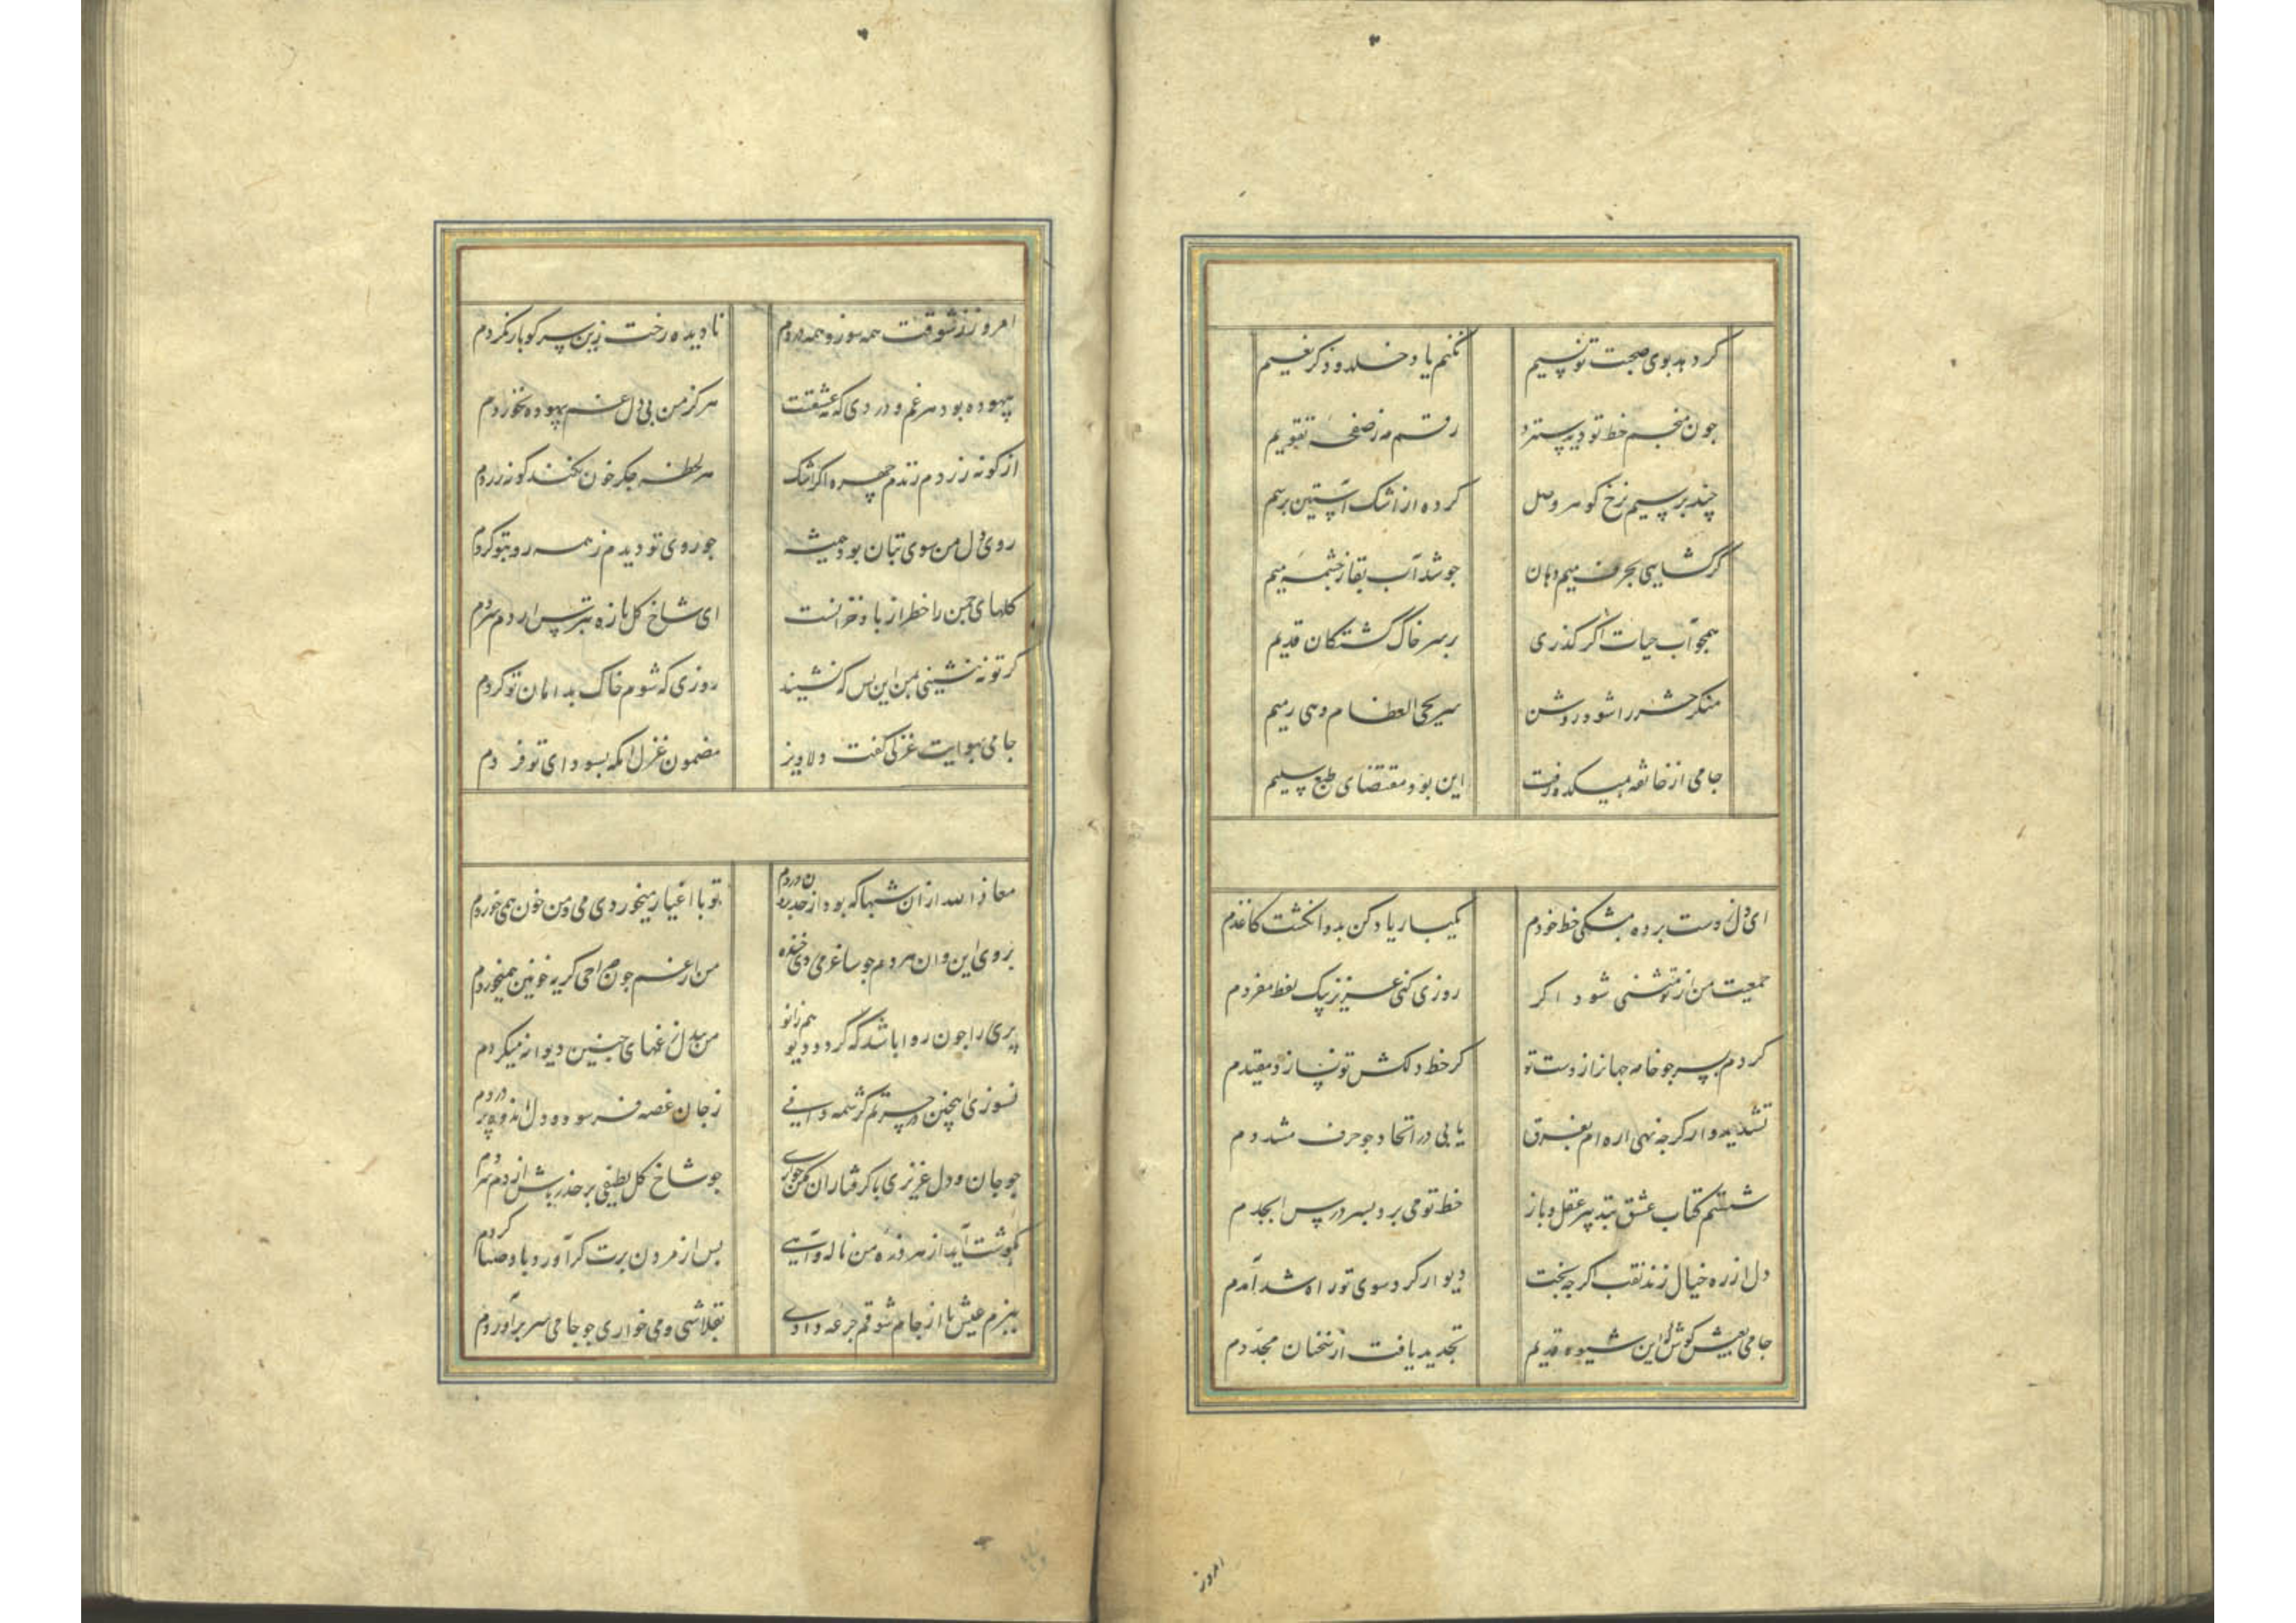 گر دهد بوی صحبت تو نسیم
نکنم یاد خلد و ذکر نعیم
چون منجم خط تو دید سترد
رقم مه ز صفحه تقویم
چند پرسیم نرخ گوهر وصل
کرده از اشک آستین پر سیم
گر گشایی بحرف میم دهان
جوشد آب بقا ز چشمه میم
همچو آب حیات اگر گذری
بر سر خاک کشتگان قدیم
منکر حشر را شود روشن
سر یحیی العظام و هی رمیم
جامی از خانقه بمیکده رفت
این بود مقتضای طبع سلیم
ای دل ز دست برده بمشکی خط خودم
یکبار یاد کن بدو انگشت کاغذم
جمعیت من از تو شنی شود اگر
روزی کنی عزیز بیک لفظ مفردم
گردم بسر چو خامه جهانرا ز دست تو
گر خط دلکش تو نسازد مقیدم
تشدیدوار گرچه نهی اره ام بفرق
یابی در اتحاد چو حرف مشددم
شستم کتاب عشق بتدبیر عقل و باز
خط تو می برد بسر درس ابجدم
دل از ره خیال زند نقب اگر چه بخت
دیوار کرد سوی تو راه شد آمدم
جامی بعیش کوش که این شیوه قدیم
تجدید یافت از سخنان مجددم
امروز
امروز ز شوقت همه سوز و همه دردم
نادیده رخت زین سر کو باز نگردم
بیهوده بود هر غم و دردی که نه عشقت
هرگز من بی دل غم بیهوده نخوردم
از گونه زردم نزدم چهره اگر اشک
هر لحظه بجگر خون نکند گونه زردم
روی دل من سوی بتان بود همیشه
چو روی تو دیدم ز همه رو بتو کردم
گلهای چمن را خطر از باد خزانست
ای شاخ گل تازه بترس از دم سردم
گر تو ننشینی بمن این بس که نشیند
روزی که شوم خاک بدامان تو گردم
جامی بهوایت غزلی گفت دلاویز
مضمون غزل آنکه بسودای تو فردم
معاذالله از آن شبها که بود از حد برون دردم
تو با اغیار میخوردی می و من خون همی خوردم
بروی این و آن هر دم چو ساغر می زدی خنده
من از غم چون صراحی گریه خونین همیخوردم
پری را چون روا باشد که گردد دیو هم زانو
من بیدل ز غمهای چنین دیوانه میگردم
نسوزی اینچنین در حسرتم گر شمه دانی
ز جان غصه فرسود و دل اندوه پروردم
چو جان و دل عزیزی با گرفتاران مکن خواری
چو شاخ گل لطیفی بر حذر باش از دم سردم
بگوشت آید از هر ذره من ناله و آهی
پس از مردن برت گر آورد باد صبا گردم
ببزم عیش تا از جام شوقم جرعه دادی
بقلاشی و می خواری چو جامی سر برآوردم